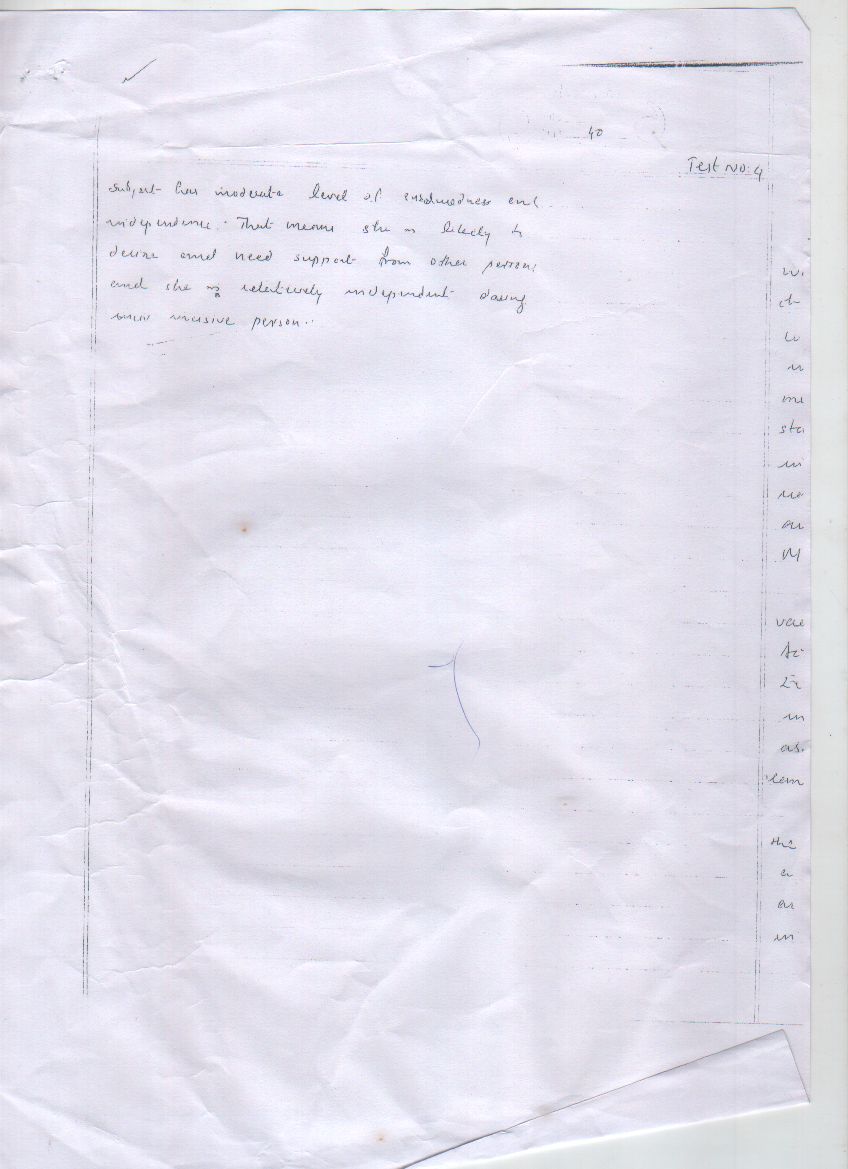 40
Test No: 4
subject has moderate level of and
independence. That means she is likely to
desire and need support from other persons
and she is relatively independent
person.
wi
ch
w
in
me
sta
in
ne
an
M
vae
in
as.
the
a
an
in